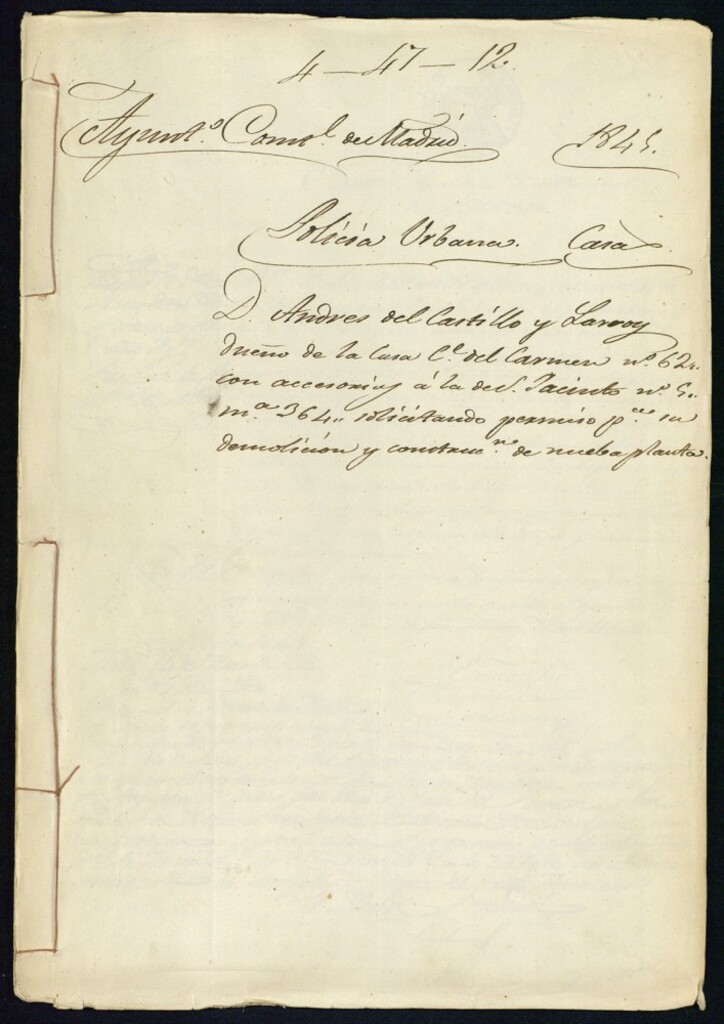 4-47-12.
Ayunt.º Const.l de Madrid. 1845.
Policia Urbana. Casas.
D. Andres del Castillo y Larroy
dueño de la Casa C.e del Carmen n.º 62..
con accesorias á la de S. Jacinto n.º 5..
m.a 364.. solicitando permiso p.a su
demolicion y construc.on de nueba planta.